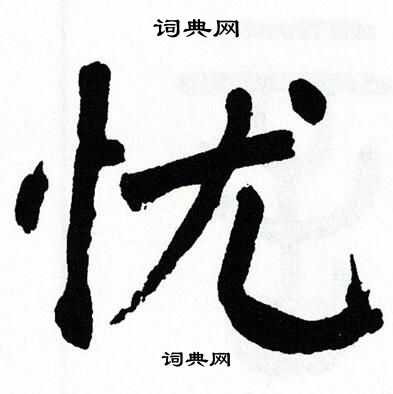 词典网
忧
词典网